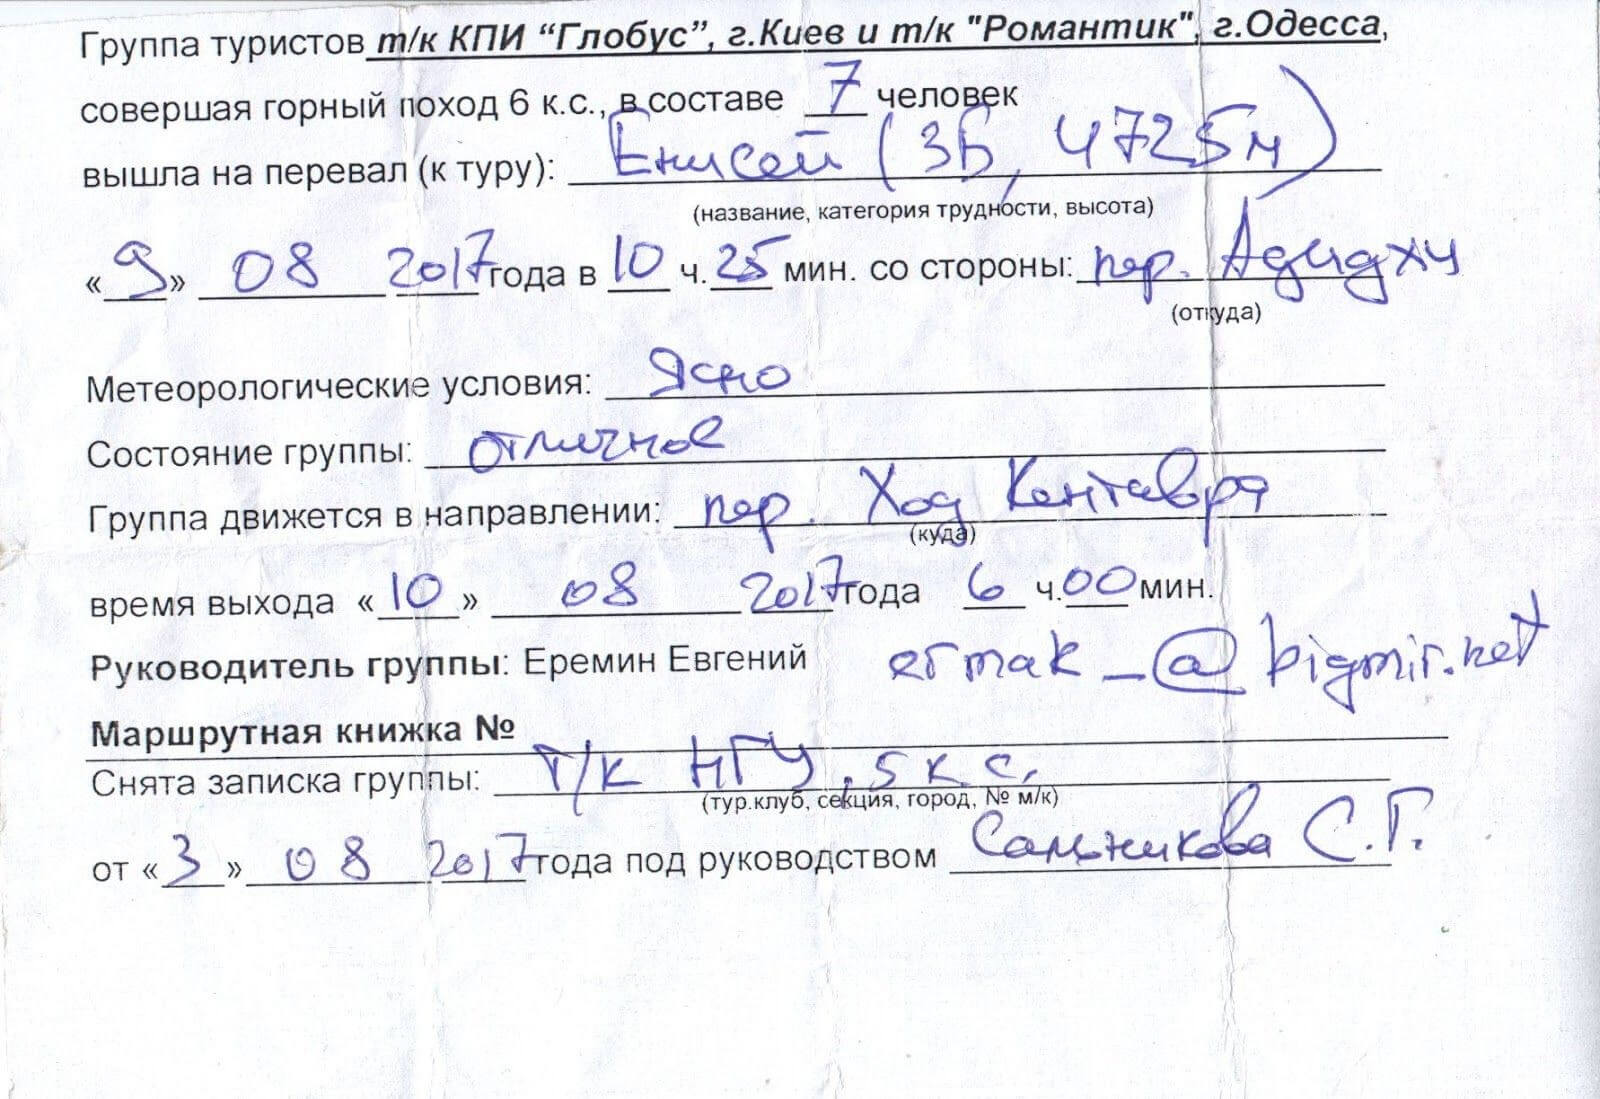 Группа туристов т/к КПИ “Глобус”, г.Киев и т/к "Романтик", г.Одесса,
совершая горный поход 6 к.с., в составе 7 человек
вышла на перевал (к туру): Енисей (3Б, 4725м)
(название, категория трудности, высота)
«9» 08 2017 года в 10 ч. 25 мин. со стороны: пер. Адиджхи
(откуда)
Метеорологические условия: Ясно
Состояние группы: отличное
Группа движется в направлении: пер. Ход Кентавра
(куда)
время выхода «10» 08 2017 года 6 ч. 00 мин.
Руководитель группы: Еремин Евгений ermak_@bigmir.net
Маршрутная книжка №
Снята записка группы: Т/к НГУ, 5 к с.
(тур.клуб, секция, город, № м/к)
от «3» 08 2017 года под руководством Сальникова С.Г.